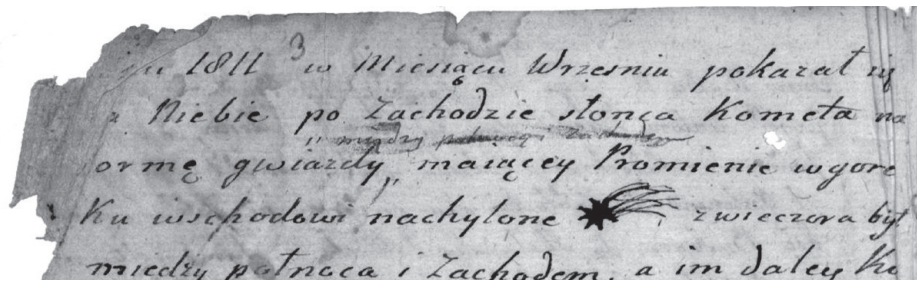 1811 3 w Miesiącu Wrzesniu pokazał się
Niebie po Zachodzie słonca Kometa na
między pułnocą i Zachodem
ormę gwiazdy, maiącey Promienie wgorę
Ku wschodowi nachylone zwieczora był
między połnocą i Zachodem, a im daley Ku